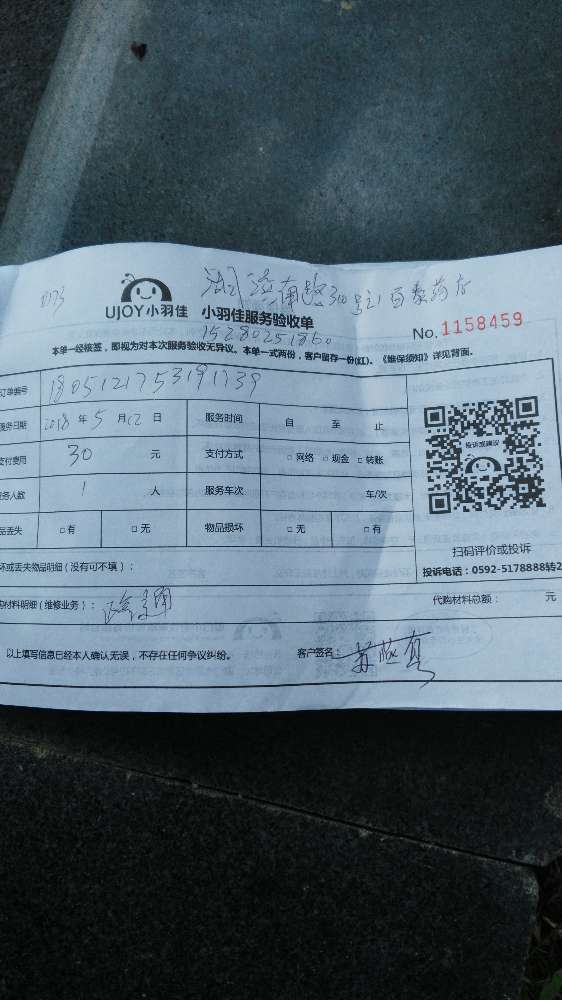 UJOY小羽佳 小羽佳服务验收单
15280251860
No.1158459
本单一经核签，即视为对本次服务验收无异议。本单一式两份，客户留存一份(红)。《维保须知》详见背面。
订单编号
服务日期 2018 年 5 月 12 日 服务时间 自 至 止
支付费用 30 元 支付方式 □ 网络 □ 现金 □ 转账
服务人数 1 人 服务车次 车/次
品丢失 □ 有 □ 无 物品损坏 □ 无 □ 有
投诉或建议
扫码评价或投诉
投诉电话：0592-5178888转2
坏或丢失物品明细（没有可不填）：
材料明细（维修业务）： 代购材料总额： 元
以上填写信息已经本人确认无误，不存在任何争议纠纷。 客户签名：